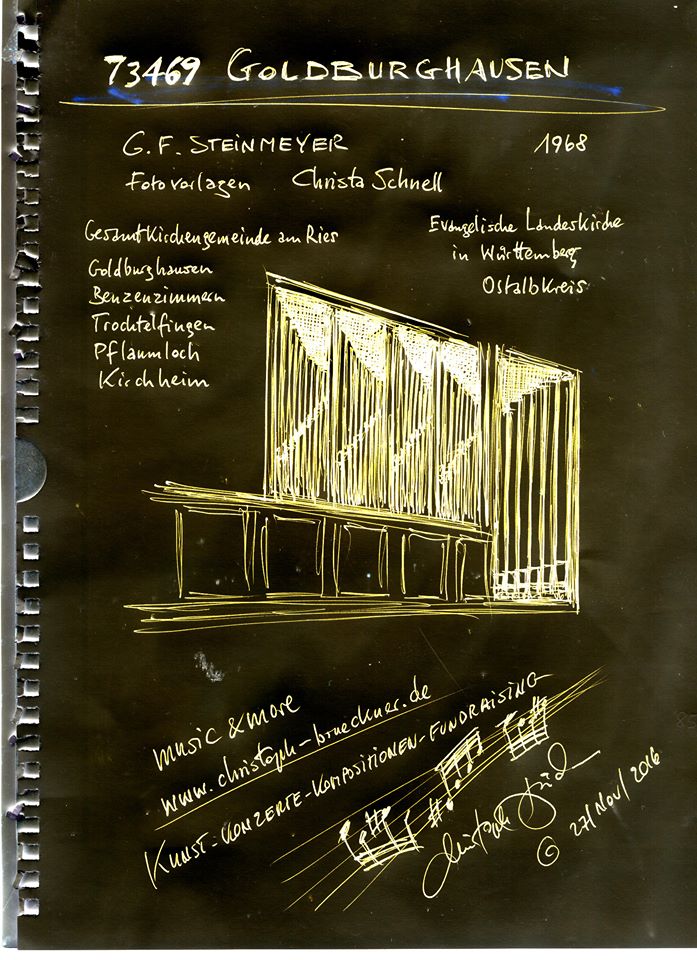 73469 GOLDBURGHAUSEN
G. F. STEINMEYER 1968
Fotovorlagen Christa Schnell
Gesamtkirchengemeinde am Ries
Goldburghausen
Benzenzimmern
Trochtelfingen
Pflaumloch
Kirchheim
Evangelische Landeskirche
in Württemberg
Ostalbkreis
music & more
www.christoph-brueckner.de
KUNST-KONZERTE-KOMPOSITIONEN-FUNDRAISING
© 27/Nov/2016